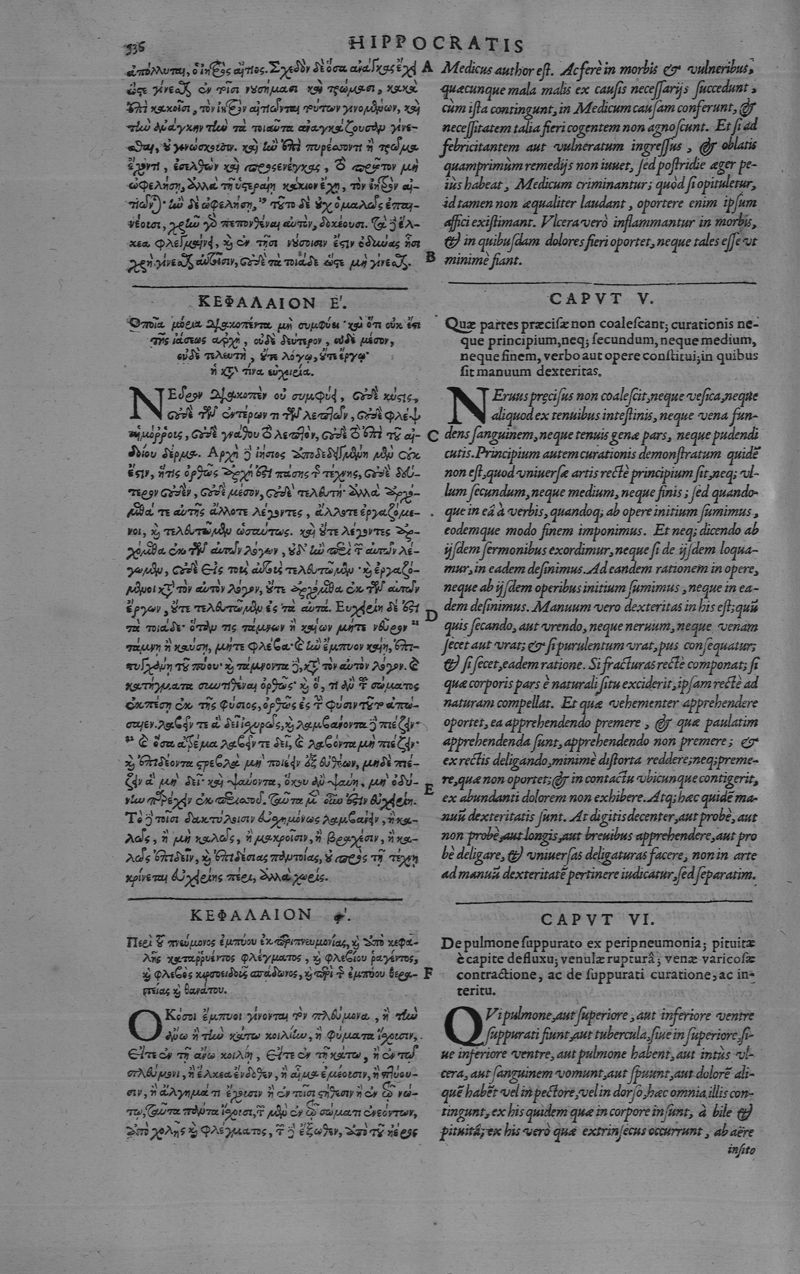 536
HIPPOCRATIS
ἀπόλλυται, ὁ ἰητρὸς αἴτιος. Σχεδὸν δὲ ὅσα ἀνάγκας ἔχει
ὥστε γίνεσθαι ἐν τοῖσι νουσήμασι καὶ τρώμασι, κακὰ
ἐπὶ κακοῖσι, τὸν ἰητρὸν αἰτιῶνται τούτων γινομένων, καὶ
τὴν ἀνάγκην τὴν τὰ τοιαῦτα ἀναγκάζουσαν γίνε-
σθαι, οὐ γινώσκουσιν. καὶ ἢν ἐπὶ πυρέσσοντι ἢ τρῶμα
ἔχοντι, ἐσελθὼν καὶ προσενέγκας, τὸ πρῶτον μὴ
ὠφελήσῃ, ἀλλὰ τῇ ὑστεραίῃ κάκιον ἔχῃ, τὸν ἰητρὸν αἰ-
τιῶνται· ἢν δὲ ὠφελήσῃ, τοῦτο δὲ οὐχ ὁμαλῶς ἐπαι-
νέουσι, χρεὼν γὰρ πεπονθέναι αὐτὸν, δοκέουσι. Τὰ δὲ ἕλ-
κεα φλεγμαίνειν, καὶ ἐν τῇσι νούσοισιν ἔστιν ὀδύνας ᾗσι
χρὴ γίνεσθαι αὐτῇσιν, οὐδὲ τὰ τοιάδε ὥστε μὴ γίνεσθαι.
ΚΕΦΑΛΑΙΟΝ Ε΄.
Ὁποῖα μόρια ἀποκοπέντα μὴ συμφύει· καὶ ὅτι οὐκ ἔστι
τῆς ἰάσεως ἀρχὴ, οὐδὲ δεύτερον, οὐδὲ μέσον,
οὐδὲ τελευτὴ, οὔτε λόγῳ, οὔτε ἔργῳ·
ἢ κατά τινα εὐχειρία.
ΝΕῦρον ἀποκοπὲν οὐ συμφύει, οὐδὲ κύστις,
οὐδὲ τῶν ἐντέρων τι τῶν λεπτῶν, οὐδὲ φλὲψ
αἱμόρροις, οὐδὲ γνάθου τὸ λεπτὸν, οὐδὲ τὸ ἐπὶ τῷ αἰ-
δοίου δέρμα. Ἀρχὴ δὲ ἰήσιος ἀποδεδειγμένη μὲν οὐκ
ἔστιν, ἥτις ὀρθῶς ἀρχή ἐστι πάσης τῆς τέχνης, οὐδὲ δεύ-
τερον οὐδὲν, οὐδὲ μέσον, οὐδὲ τελευτή· ἀλλὰ ἀρχό-
μεθά τε αὐτῆς ἄλλοτε λέγοντες, ἄλλοτε ἐργαζόμε-
νοι, καὶ τελευτῶμεν ὡσαύτως. καὶ οὔτε λέγοντες ἀρ-
χόμεθα ἐκ τῶν αὐτῶν λόγων, οὐδ' ἢν περὶ τῶν αὐτῶν λέ-
γωμεν, οὐδὲ εἰς τοὺς αὐτοὺς τελευτῶμεν· καὶ ἐργαζό-
μενοι κατὰ τὸν αὐτὸν λόγον, οὔτε ἀρχόμεθα ἐκ τῶν αὐτῶν
ἔργων, οὔτε τελευτῶμεν ἐς τὰ αὐτά. Εὐχειρίη δέ ἐστι
τὰ τοιάδε· ὅταν τις τάμνων ἢ καίων μήτε νεῦρον
τάμνῃ ἢ καύσῃ, μήτε φλέβα· καὶ ἢν ἔμπυον καίῃ, ἐπι-
τυγχάνῃ τοῦ πύου· καὶ τάμνοντα δὲ, κατὰ τὸν αὐτὸν λόγον. καὶ
κατήγματα συντιθέναι ὀρθῶς· καὶ ὅ, τι ἂν τοῦ σώματος
ἐκπέσῃ ἐκ τῆς φύσιος, ὀρθῶς ἐς τὴν φύσιν τοῦτο ἀπῶ-
σαι· λαβεῖν τε ἃ δεῖ ἰσχυρῶς, καὶ λαμβάνοντα δὲ πιέζειν·
καὶ ὅσα ἀτρέμα λαβεῖν τε δεῖ, καὶ λαβόντα μὴ πιέζειν·
καὶ ἐπιδέοντα στρεβλὰ μὴ ποιεῖν ἐξ εὐθέων, μηδὲ πιέ-
ζειν ἃ μὴ δεῖ· καὶ ψαύοντα, ὅκου ἂν ψαύῃ, μὴ ὀδύ-
νην παρέχειν ἐκ περισσοῦ. Ταῦτα μὲν οὖν ἐστιν εὐχειρίη.
Τὸ δὲ τοῖσι δακτύλοισιν εὐσχημόνως λαμβάνειν, ἢ κα-
λῶς, ἢ μὴ καλῶς, ἢ μακροῖσιν, ἢ βραχέσιν, ἢ κα-
λῶς ἐπιδεῖν, καὶ ἐπιδέσιας παντοίας, οὐ πρὸς τῇ τέχνῃ
κρίνεται εὐχειρίης πέρι, ἀλλὰ χωρίς.
ΚΕΦΑΛΑΙΟΝ ϛ΄.
Περὶ τοῦ πνεύμονος ἐμπύου ἐκ περιπνευμονίας, καὶ ἀπὸ κεφα-
λῆς καταρρυέντος φλέγματος, καὶ φλεβίου ῥαγέντος,
καὶ φλεβὸς κιρσοειδοῦς σπάδωνος, καὶ περὶ τοῦ ἐμπύου θερα-
πείας καὶ θανάτου.
ΟΚόσοι ἔμπυοι γίνονται τὸν πλεύμονα, ἢ τὴν
ἄνω ἢ τὴν κάτω κοιλίην, ἢ φύματα ἴσχουσιν,
εἴτε ἐν τῇ ἄνω κοιλίῃ, εἴτε ἐν τῇ κάτω, ἢ ἐν τῷ
πλεύμονι, ἢ ἕλκεα ἔνδοθεν, ἢ αἷμα ἐμέουσιν, ἢ πτύου-
σιν, ἢ ἄλγημά τι ἔχουσιν ἢ ἐν τοῖσι στήθεσιν ἢ ἐν τῷ νώ-
τῳ, ταῦτα πάντα ἴσχουσι, τῶν μὲν ἐν τῷ σώματι ἐνεόντων,
ἀπὸ χολῆς καὶ φλέγματος, τῶν δὲ ἔξωθεν, ἀπὸ τοῦ ἠέρος
A
B
C
D
E
F
Medicus author est. Ac ferè in morbis & vulneribus,
quæcunque mala malis ex causis necessarijs succedunt,
cùm ista contingunt, in Medicum causam conferunt, &
necessitatem talia fieri cogentem non agnoscunt. Et si ad
febricitantem aut vulneratum ingressus, & oblatis
quamprimùm remedijs non iuuet, sed postridie æger pe-
ius habeat, Medicum criminantur; quòd si opituletur,
id tamen non æqualiter laudant, oportere enim ipsum
affici existimant. Vlcera verò inflammantur in morbis,
& in quibusdam dolores fieri oportet, neque tales esse vt
minimè fiant.
CAPVT V.
Quæ partes præcisæ non coalescant; curationis ne-
que principium, neq; secundum, neque medium,
neque finem, verbo aut opere constitui; in quibus
sit manuum dexteritas.
NEruus pręcisus non coalescit, neque vesica, neque
aliquod ex tenuibus intestinis, neque vena fun-
dens sanguinem, neque tenuis genæ pars, neque pudendi
cutis. Principium autem curationis demonstratum quidē
non est, quod vniuersæ artis rectè principium sit, neq; vl-
lum secundum, neque medium, neque finis; sed quando-
que in eâ à verbis, quandoq; ab opere initium sumimus,
eodemque modo finem imponimus. Et neq; dicendo ab
ijsdem sermonibus exordimur, neque si de ijsdem loqua-
mur, in eadem desinimus. Ad eandem rationem in opere,
neque ab ijsdem operibus initium sumimus, neque in ea-
dem desinimus. Manuum vero dexteritas in his est; quū
quis secando, aut vrendo, neque neruum, neque venam
secet aut vrat; & si purulentum vrat, pus consequatur;
& si secet, eadem ratione. Si fracturas rectè componat; si
quæ corporis pars è naturali situ exciderit, ipsam rectè ad
naturam compellat. Et quæ vehementer apprehendere
oportet, ea apprehendendo premere, & quæ paulatim
apprehendenda sunt, apprehendendo non premere; &
ex rectis deligando, minimè distorta reddere; neq; preme-
re, quæ non oportet; & in contactu vbicunque contigerit,
ex abundanti dolorem non exhibere. Atq; hæc quidē ma-
nuū dexteritatis sunt. At digitis decenter, aut probè, aut
non probè, aut longis, aut breuibus apprehendere, aut pro
bè deligare, & vniuersas deligaturas facere, non in arte
ad manuū dexteritatē pertinere iudicatur, sed separatim.
CAPVT VI.
De pulmone suppurato ex peripneumonia; pituitæ
è capite defluxu; venulæ rupturâ; venæ varicosæ
contractione, ac de suppurati curatione, ac in-
teritu.
QVi pulmone, aut superiore, aut inferiore ventre
suppurati fiunt, aut tubercula, siue in superiore, si-
ue inferiore ventre, aut pulmone habent, aut intùs vl-
cera, aut sanguinem vomunt, aut spuunt, aut dolorē ali-
quē habēt vel in pectore, vel in dorso, hæc omnia illis con-
tingunt, ex his quidem quæ in corpore insunt, à bile &
pituitâ; ex his verò quæ extrinsecus occurrunt, ab aëre
insito